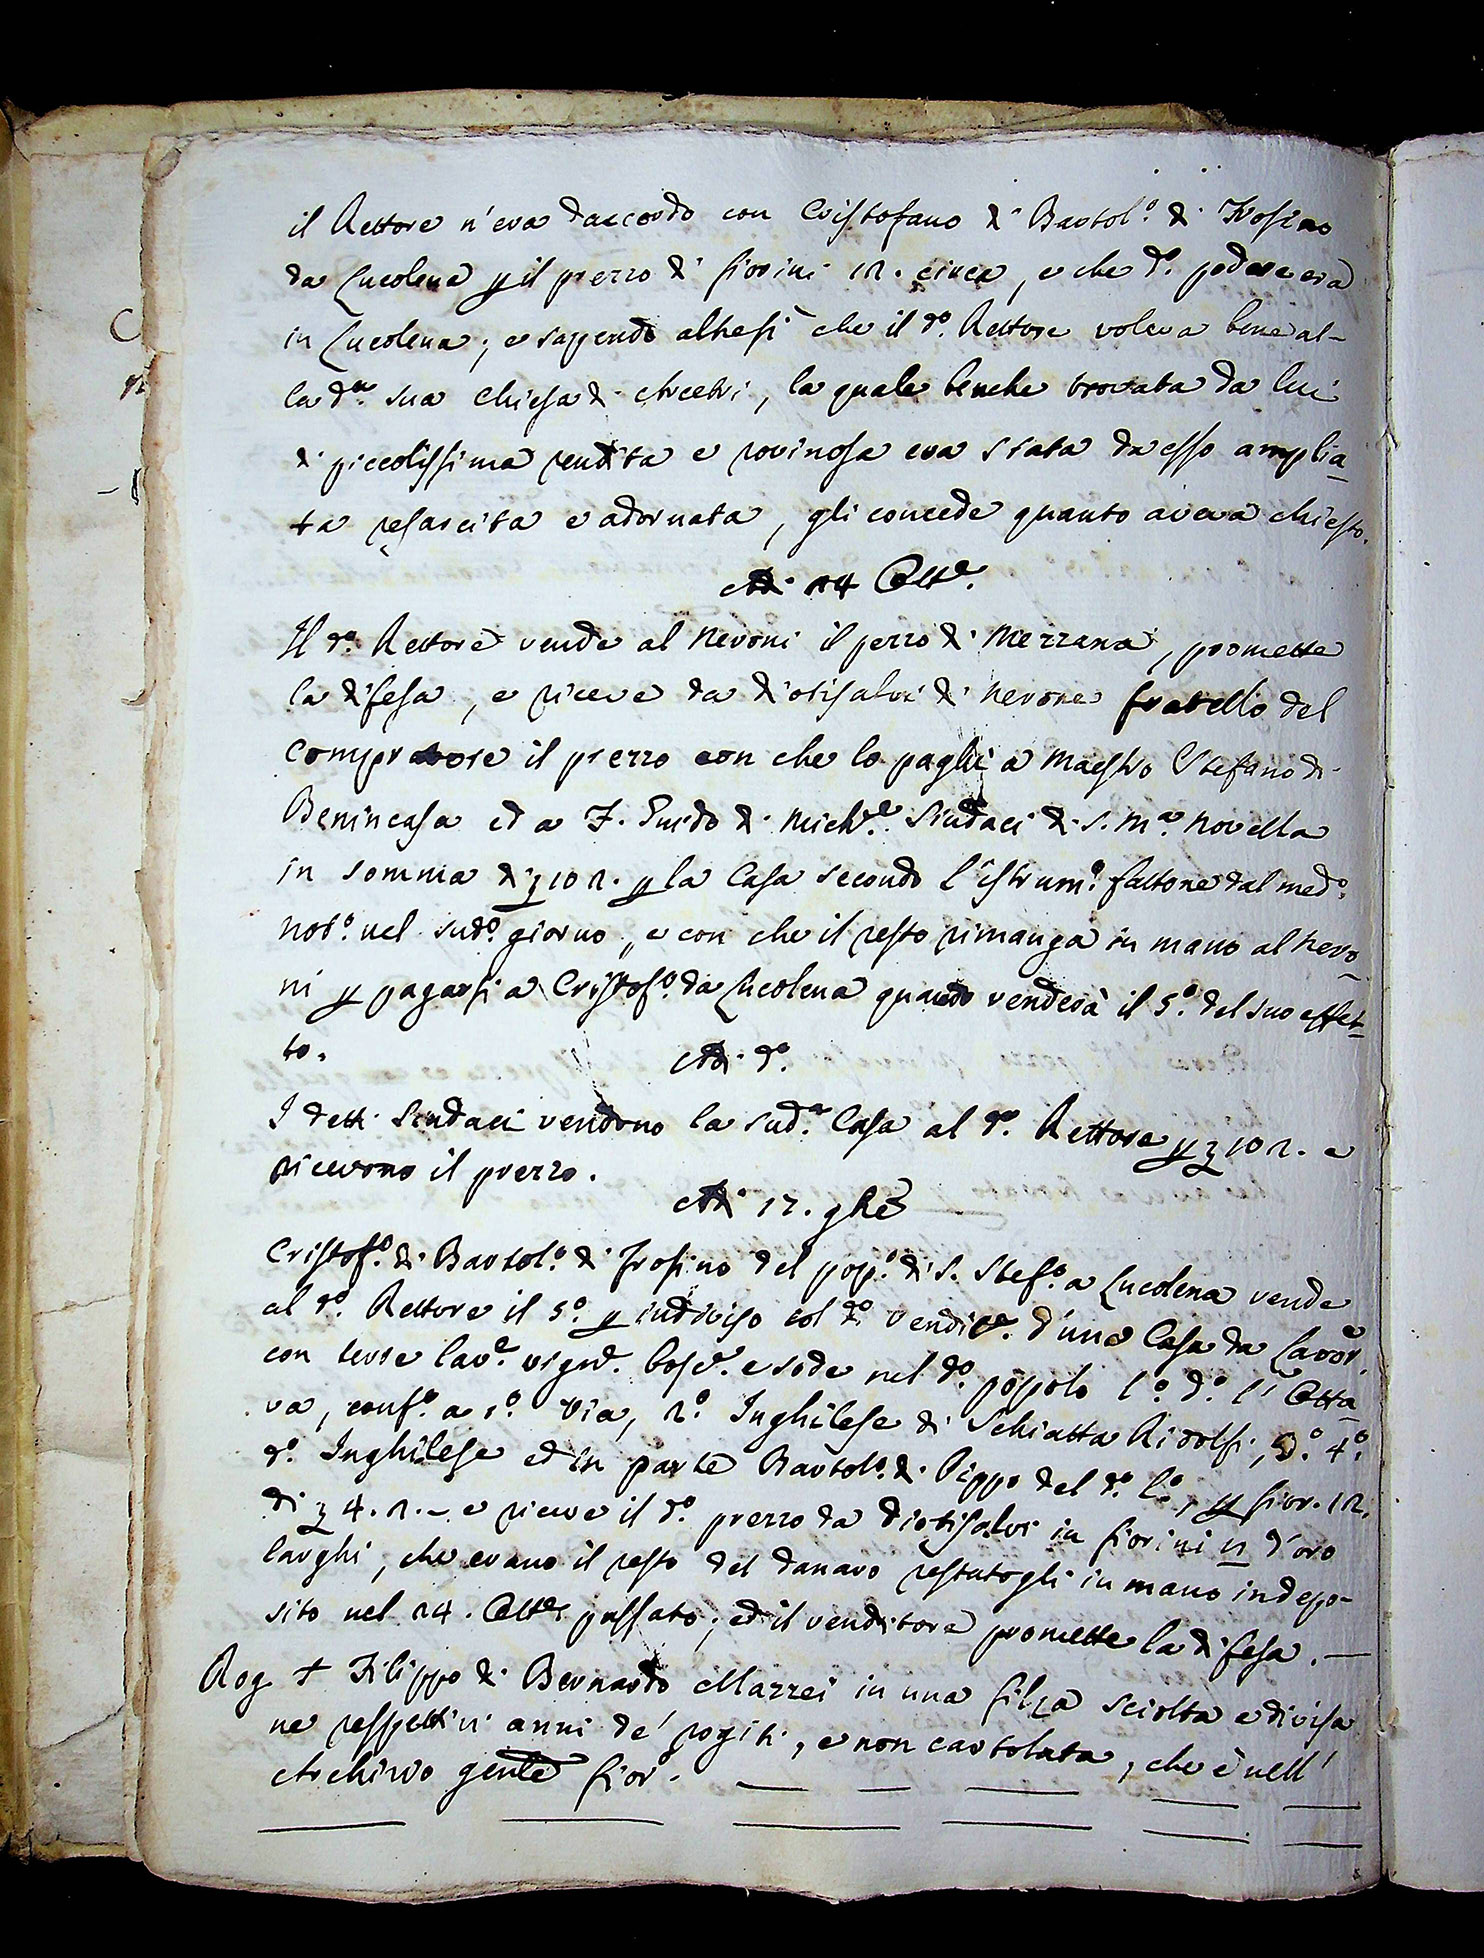 il Rettore n'era daccordo con Cristofano di Bartol.º di Frosino
da Lucolena p il prezzo di fiorini 12. circa, e che d.º podere era
in Lucolena; e sapendo altresì che il d.º Rettore voleva bene al-
la d.ª sua Chiesa di Arcetri, la quale benche trovata da lui
di piccolissima rendita e rovinosa era stata da esso amplia-
ta resarcita e adornata, gli concede quanto aveva chiesto.
Adi 24 Ott.e
Il d.º Rettore vende al Neroni il pezzo di Mezzana, promette
la difesa, e riceve da Diotisalvi di Nerone fratello del
compratore il prezzo con che lo paghi a Maestro Stefano di
Benincasa ed a F. Guido di Mich.e Sindaci di S. M.ª Novella
in somma di 102. p la Casa secondo l'istrum.º fattone dal med.º
Not.º nel sud.º giorno, e con che il resto rimanga in mano al Nero-
ni p pagarsi a Cristof.º da Lucolena quando venderà il 5.º del suo effet-
to.
Adi d.º
I detti Sindaci vendono la sud.ª Casa al d.º Rettore p 102. e
ricevono il prezzo.
Adi 17. 9bre
Cristof.º di Bartol.º di Frosino del pop.º di S. Stef.º a Lucolena vende
al d.º Rettore il 5.º p indiviso col d.º vendit.e d'una Casa da Lavor.e
con terre lav.e vign.e bosc.e e sode nel d.º popolo l.º d.º l'Otta-
va, conf.º a 1.º Via, 2.º Inghilese di Schiatta Ridolfi, 3.º 4.º
d.º Inghilese ed in parte Bartol.º di Pippo del d.º l.º, p fior. 12.
di 4. 2. - e riceve il d.º prezzo da Diotisalvi in fiorini 12 d'oro
larghi, che erano il resto del danaro restatogli in mano in depo-
sito nel 24. Ott.e passato; ed il venditore promette la difesa. —
Rog. + Filippo di Bernardo Mazzei in una filza sciolta e divisa
ne respettivi anni de' rogiti, e non cartolata, che è nell'
Archivio gen.le fior.º